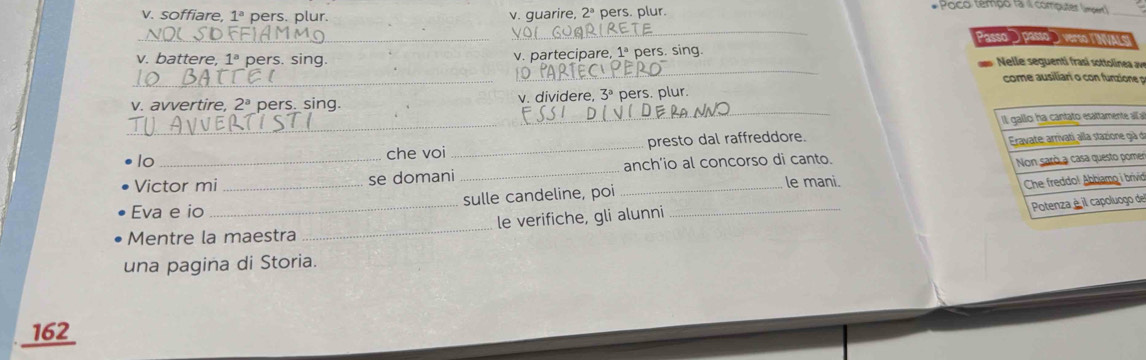 v. soffiare, 1ª pers. plur.
NOI SOFFIAMMO
v. guarire, 2ª pers. plur.
VOI GUARIRETE
v. battere, 1ª pers. sing.
IO BATTEI
v. partecipare, 1ª pers. sing.
IO PARTECIPERÒ
v. avvertire, 2ª pers. sing.
TU AVVERTISTI
v. dividere, 3ª pers. plur.
ESSI DIVIDERANNO
• Io che voi presto dal raffreddore.
• Victor mi se domani anch'io al concorso di canto.
• Eva e io sulle candeline, poi le mani.
• Mentre la maestra le verifiche, gli alunni
una pagina di Storia.
162
• Poco tempo fa il computer
Passo passo verso l'INVALSI
Nelle seguenti frasi sottolinea
come ausiliari o con funzione
Il gallo ha cantato esattamente
Eravate arrivati alla stazione già
Non sarò a casa questo
Che freddo! Abbiamo i
Potenza è il capoluogo